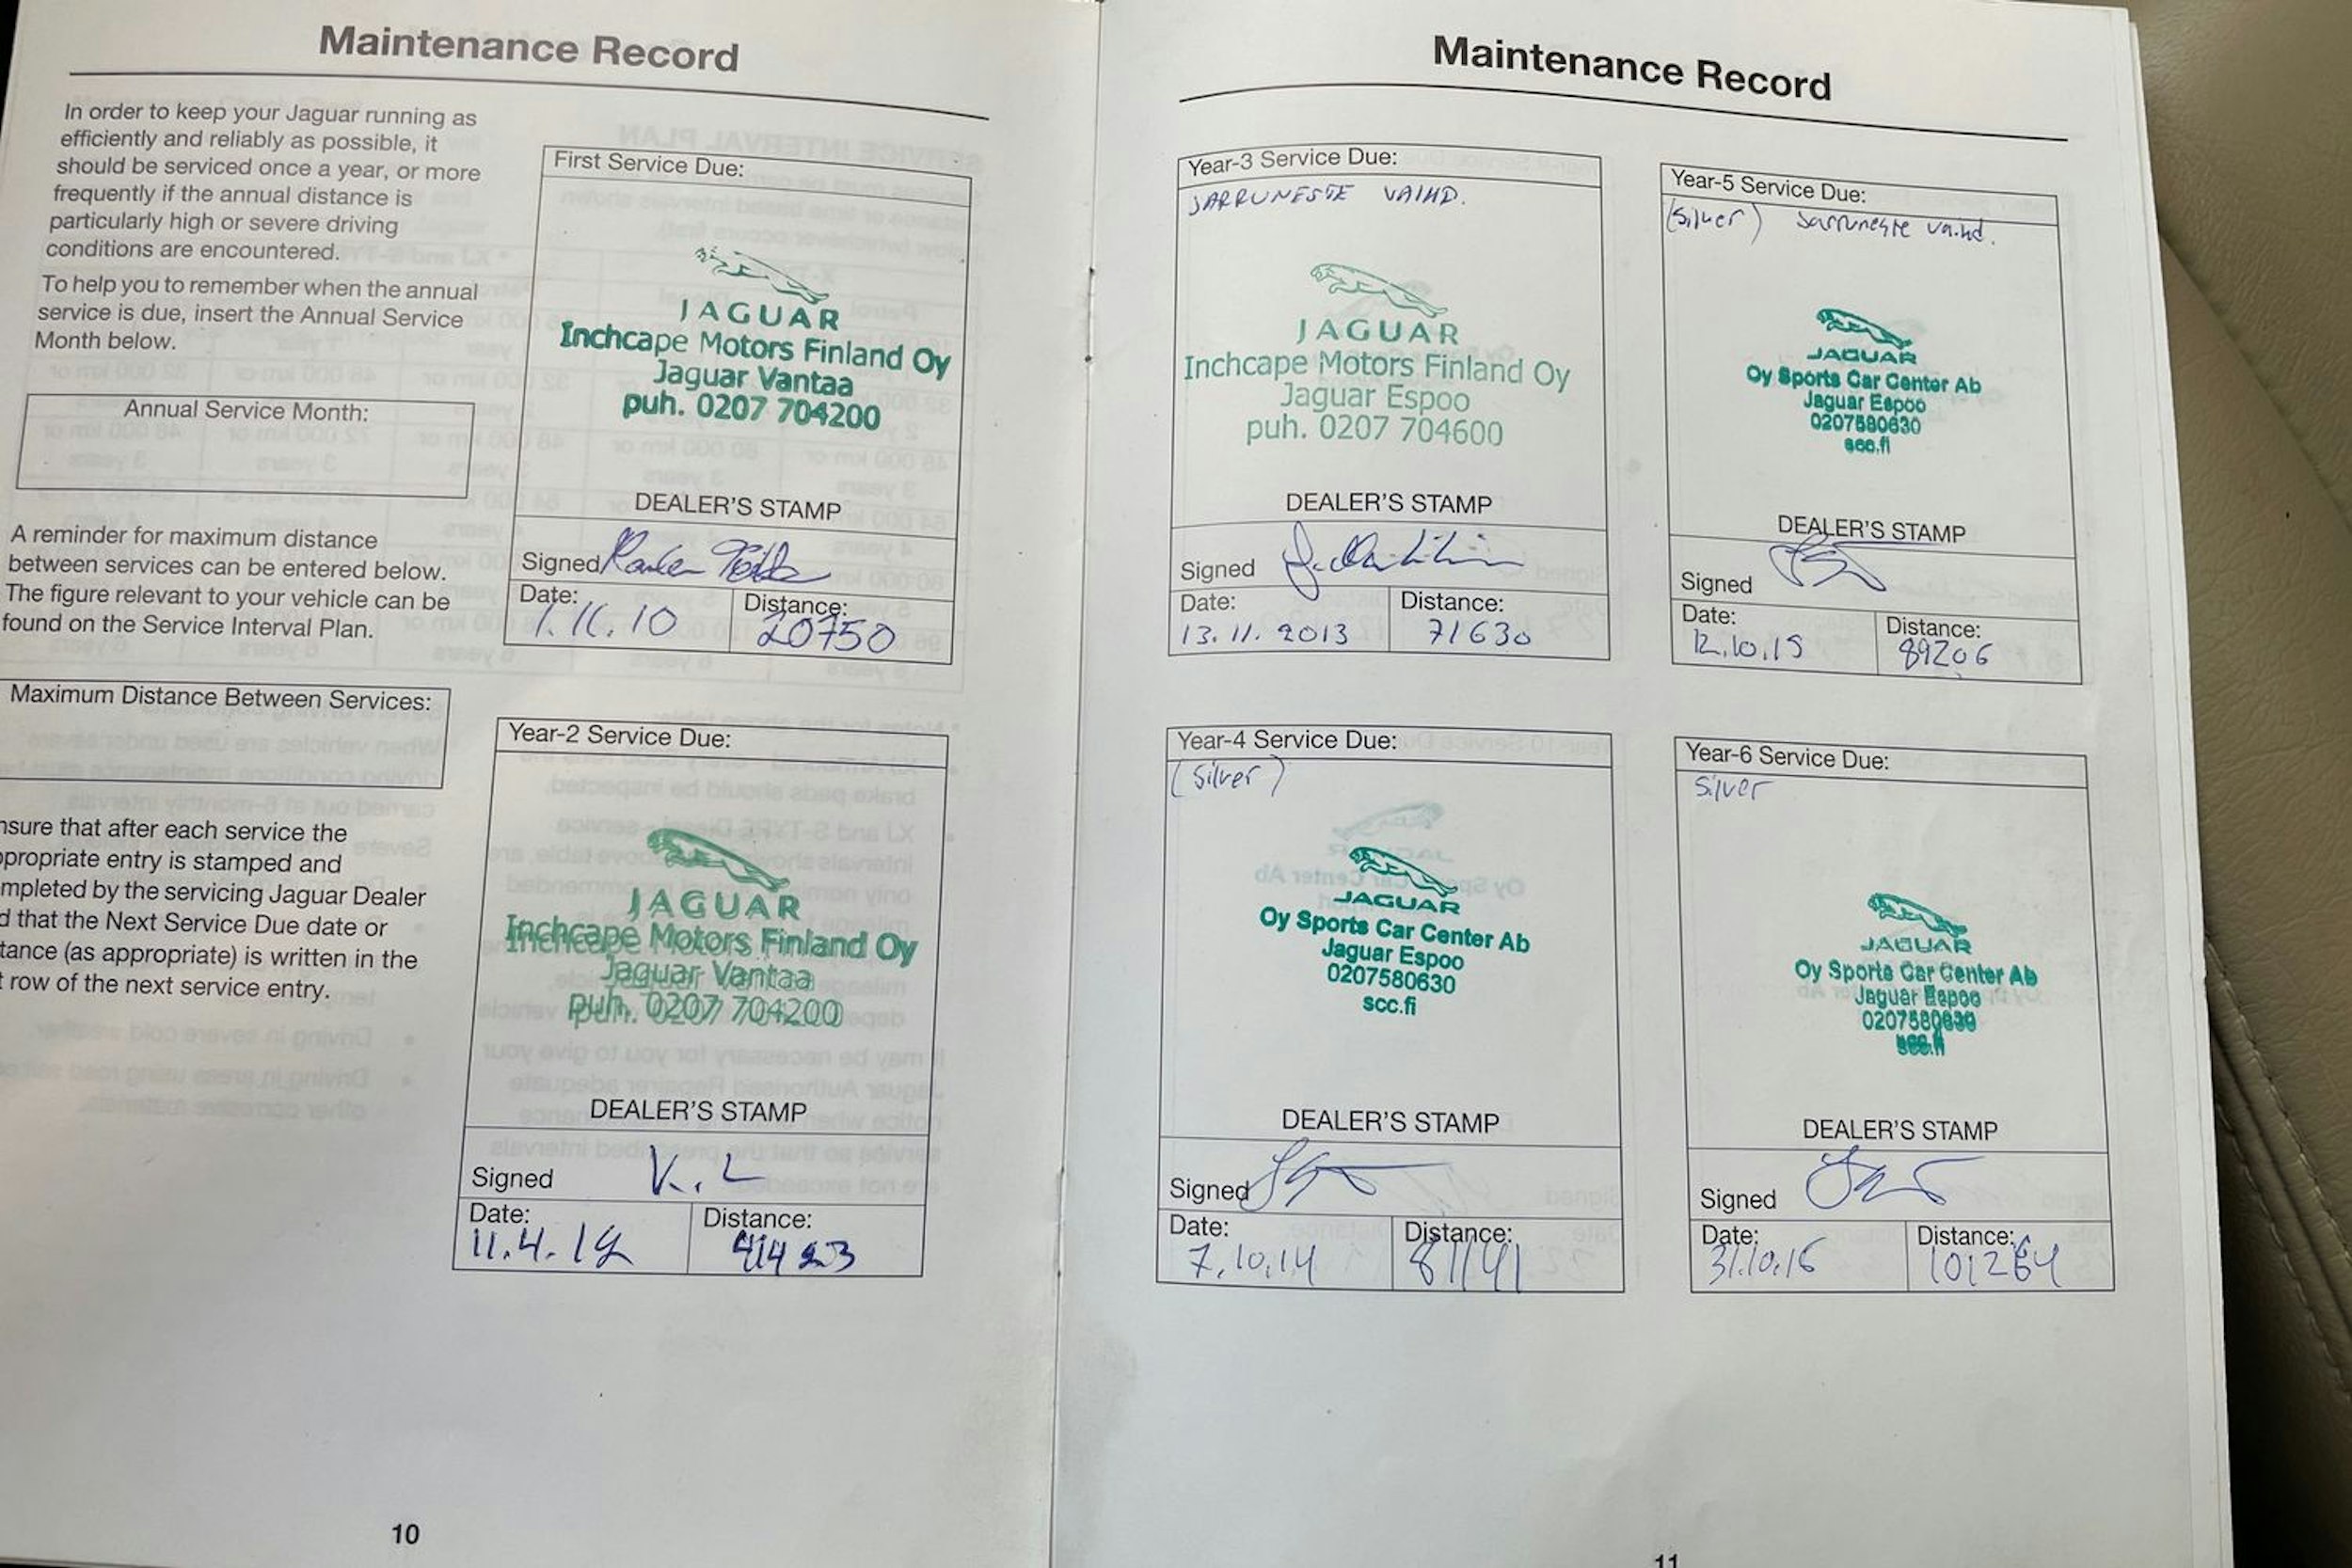 Maintenance Record
In order to keep your Jaguar running as
efficiently and reliably as possible, it
should be serviced once a year, or more
frequently if the annual distance is
particularly high or severe driving
conditions are encountered.
To help you to remember when the annual
service is due, insert the Annual Service
Month below.
Annual Service Month:
A reminder for maximum distance
between services can be entered below.
The figure relevant to your vehicle can be
found on the Service Interval Plan.
Maximum Distance Between Services:
nsure that after each service the
ppropriate entry is stamped and
mpleted by the servicing Jaguar Dealer
d that the Next Service Due date or
tance (as appropriate) is written in the
t row of the next service entry.
First Service Due:
JAGUAR
Inchcape Motors Finland Oy
Jaguar Vantaa
puh. 0207 704200
DEALER'S STAMP
Signed
Date: Distance:
1.11.10 20750
Year-2 Service Due:
JAGUAR
Inchcape Motors Finland Oy
Jaguar Vantaa
puh. 0207 704200
DEALER'S STAMP
Signed K.L
Date: Distance:
11.4.12
10
Maintenance Record
Year-3 Service Due:
JARRUNESTE VAIHD.
JAGUAR
Inchcape Motors Finland Oy
Jaguar Espoo
puh. 0207 704600
DEALER'S STAMP
Signed
Date: Distance:
13.11.2013 71630
Year-4 Service Due:
(Silver)
JAGUAR
Oy Sports Car Center Ab
Jaguar Espoo
0207580630
scc.fi
DEALER'S STAMP
Signed
Date: Distance:
7.10.14 81141
Year-5 Service Due:
(Silver) Jarruneste vaihd.
JAGUAR
Oy Sports Car Center Ab
Jaguar Espoo
0207580630
scc.fi
DEALER'S STAMP
Signed
Date: Distance:
12.10.15 89206
Year-6 Service Due:
Silver
JAGUAR
Oy Sports Car Center Ab
Jaguar Espoo
0207580630
scc.fi
DEALER'S STAMP
Signed
Date: Distance:
31.10.16 101264
11